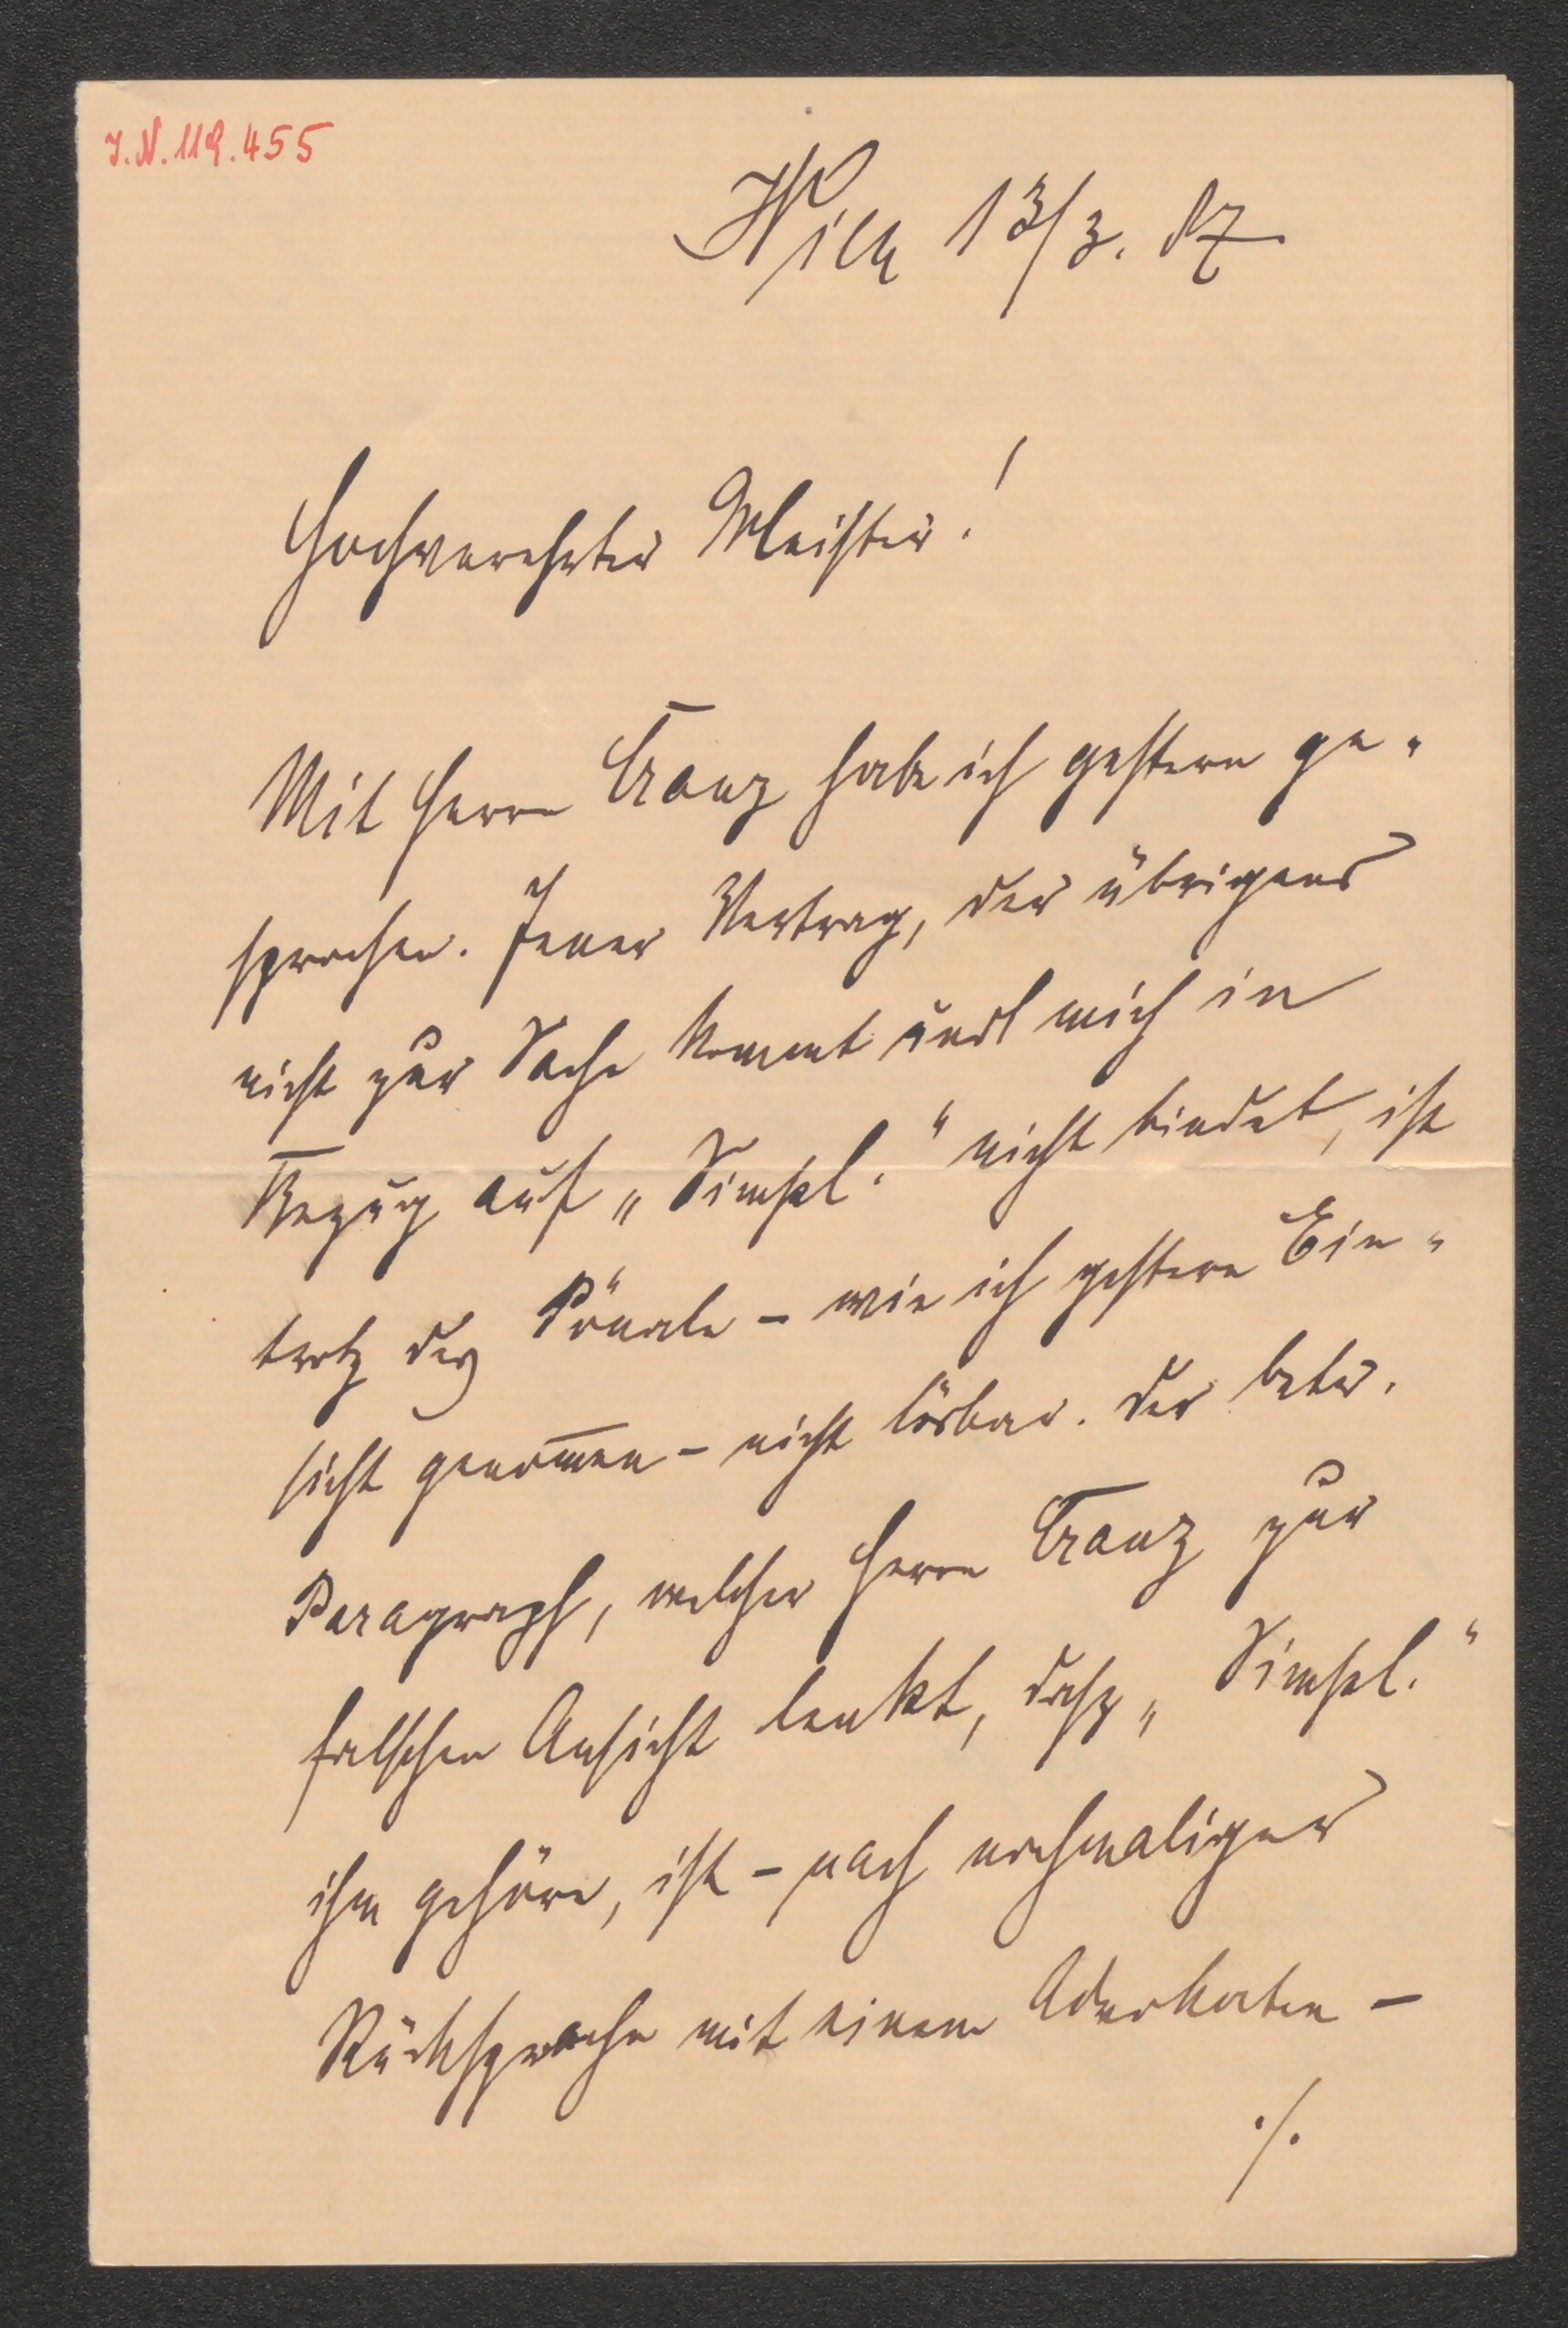 I.N. 119.455
Wien 13/3. 87
Hochverehrter Meister!
Mit Herrn Cranz habe ich gestern ge-
sprochen. Jener Vertrag, der übrigens
nicht zur Sache kommt und mich in
Bezug auf „Simpl." nicht bindet, ist
trotz des Pönale – wie ich gestern Ein-
sicht genom̅en – nicht lösbar. Der betr.
Paragraph, welcher Herrn Cranz zur
falschen Ansicht lenkt, dass „Simpl."
ihm gehöre, ist – nach nochmaliger
Rücksprache mit einem Advokaten –
./.